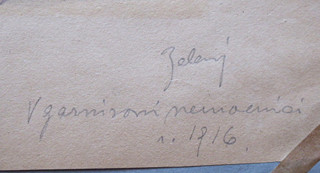 Zelený
V garnisoní nemocnici
r. 1916.